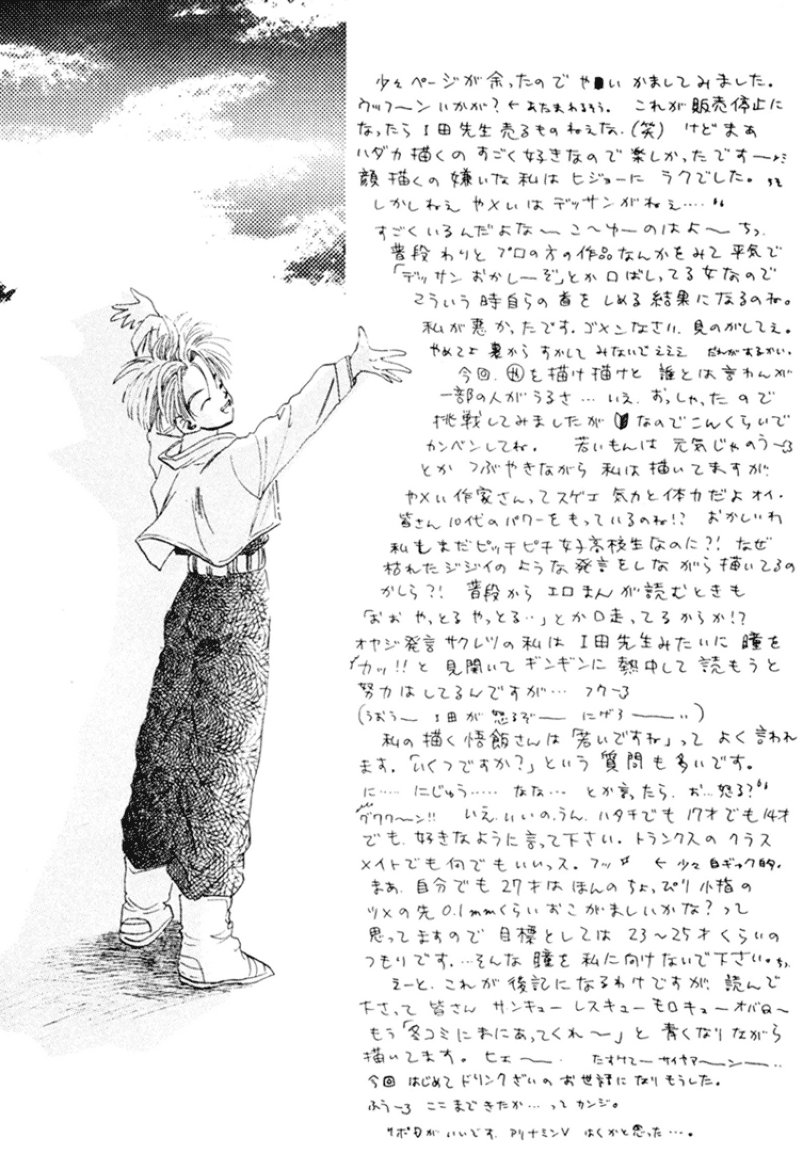 少々ページが余ったので や■い かましてみました。
ウッフ〜ン いかが? ← あたまわるそう。 これが販売停止に
なったら I田先生売るものねえな、(笑) けどまぁ
ハダカ描くの すごく好きなので 楽しかったです〜
顔描くの嫌いな私は ヒジョーに ラクでした。
しかしねぇ やメいは デッサンがねぇ‥‥
すごくいるんだよな〜 こ〜ゆーのはよ〜ちっ
普段わりと プロの方の作品なんかをみて平気で
「デッサン おかしーぞ」とか口ばしってる女なので
こういう時自らの首をしめる結果になるのね。
私が悪かったです。ゴメンなさい、見のがしてぇ。
やめてよ 裏から すかして みないでぇぇぇ だれがするかい。
今回、㋳を描け描けと 誰とは言わんが
一部の人がうるさ… いえ、おっしゃったので
挑戦してみましたが 🔰なのでこんくらいで
カンベンしてね。 若いもんは 元気じゃのう〜
とか つぶやきながら 私は描いてますが
やメい作家さんって スゲェ 気力と体力だよオイ・
皆さん10代のパワーをもっているのね!? おかしいわ
私もまだピッチピチ女子高校生なのに?! なぜ
枯れたジジイのような発言をしながら描いてるの
かしら?! 普段から エロまんが読むときも
「おお やっとる やっとる‥」とか口走ってるからか!?
オヤジ発言サクレツの私は I田先生みたいに 瞳を
カッ!!と 見開いてギンギンに 熱中して 読もうと
努力はしてるんですが… フゥ〜
(うおう〜 I田が怒るぞ〜 にげろ――‥)
私の描く悟飯さんは「若いですね」って よく言われ
ます。「いくつですか?」という 質問も多いです。
に…‥ にじゅう…‥ なな… とか言ったら、お…怒る?
グワワ〜ン!! いえ、いいの、うん、ハタチでも 17才でも14才
でも、好きなように言って下さい。トランクスの クラス
メイトでも何でもいいっス。フッ ← 少々自ギャク的。
まぁ、自分でも 27才は ほんのちょっぴり 小指の
ツメの先0.1mmくらい おこがましいかな? って
思ってますので 目標としては 23〜25才くらいの
つもりです。…そんな 瞳を 私に向けないで下さい。
えーと、これが 後記になるわけですが、読んで
下さって 皆さん サンキュー レスキュー モロキュー オバQ〜
もう「冬コミにまにあってくれ〜」と 青くなりながら
描いてます。ヒェ〜〜・ たすけてーサイヤマ〜ン―‥
今回 はじめてドリンクざいの お世話になりもうした。
ふぅ〜 ここまできたか… って カンジ。
リポDが いいです、アリナミンV はくかと思った…・。